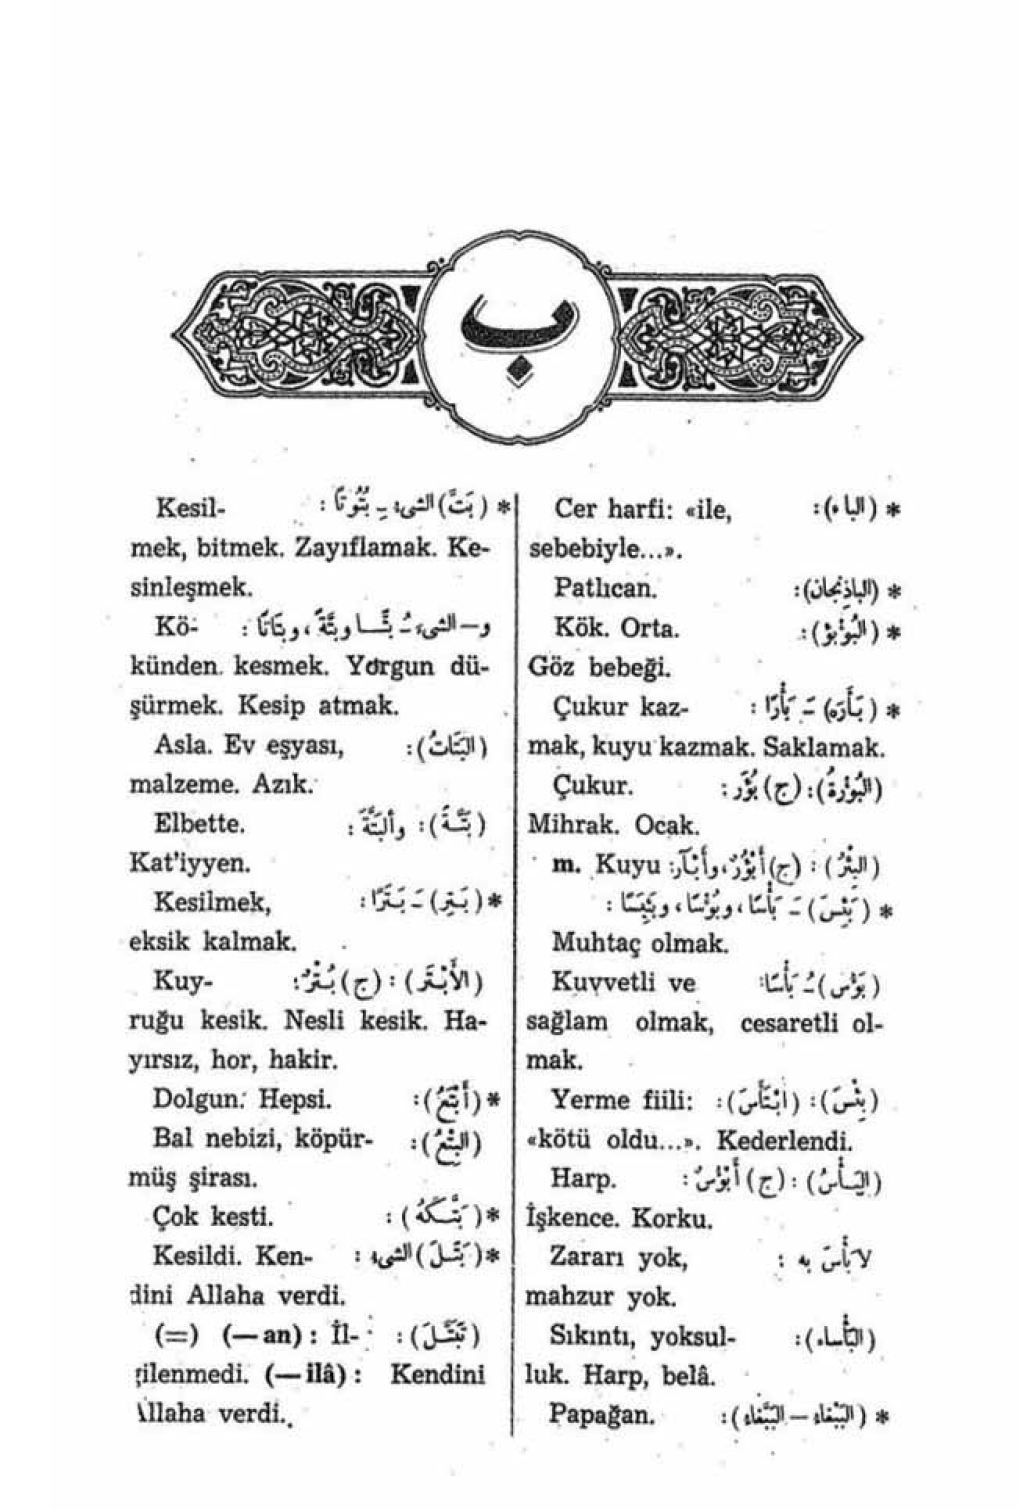 ب
* (الباء): Cer harfi: «ile,
sebebiyle...».
* (الباذِنجان): Patlıcan.
* (البُؤبؤ): Kök. Orta.
Göz bebeği.
* (بَأَرَه) ـَ بَأْرًا : Çukur kaz-
mak, kuyu kazmak. Saklamak.
(البُؤْرةُ): (ج) بُؤَر : Çukur.
Mihrak. Ocak.
(البِئْرُ) : (ج) أَبْؤُرٌ، وأَبْآر: m. Kuyu
* (بَئِسَ) ـَ بَأْسًا، وبُؤْسًا، وبَئِيسًا :
Muhtaç olmak.
(بَؤُس) ـُ بَأْسًا: Kuvvetli ve
sağlam olmak, cesaretli ol-
mak.
(بِئْسَ): (ابْتَأَسَ): Yerme fiili:
«kötü oldu...». Kederlendi.
(البَأْسُ) : (ج) أَبْؤُسٌ : Harp.
İşkence. Korku.
لا بَأْسَ به : Zararı yok,
mahzur yok.
(البَأْساء): Sıkıntı, yoksul-
luk. Harp, belâ.
* (البَبْغاء – البَبَّغاء): Papağan.
* (بَتَّ) الشىء ـِ بُتُوتًا : Kesil-
mek, bitmek. Zayıflamak. Ke-
sinleşmek.
و– الشىء ـُ بَتًّا وبَتَّةً، وبَتَاتًا : Kö-
künden kesmek. Yorgun dü-
şürmek. Kesip atmak.
(البَتَاتُ): Asla. Ev eşyası,
malzeme. Azık.
(بَتَّةً): وألبَتَّةَ : Elbette.
Kat'iyyen.
* (بَتِرَ) ـَ بَتَرًا : Kesilmek,
eksik kalmak.
(الأَبْتَر) : (ج) بُتْرٌ: Kuy-
ruğu kesik. Nesli kesik. Ha-
yırsız, hor, hakir.
* (أَبْتَعُ): Dolgun. Hepsi.
(البِتْعُ): Bal nebizi, köpür-
müş şirası.
* (بَتَّكَهُ) : Çok kesti.
* (بَتَلَ) الشىء : Kesildi. Ken-
dini Allaha verdi.
(تَبَتَّلَ): (=) (—an) : İl-
gilenmedi. (—ilâ) : Kendini
Allaha verdi.